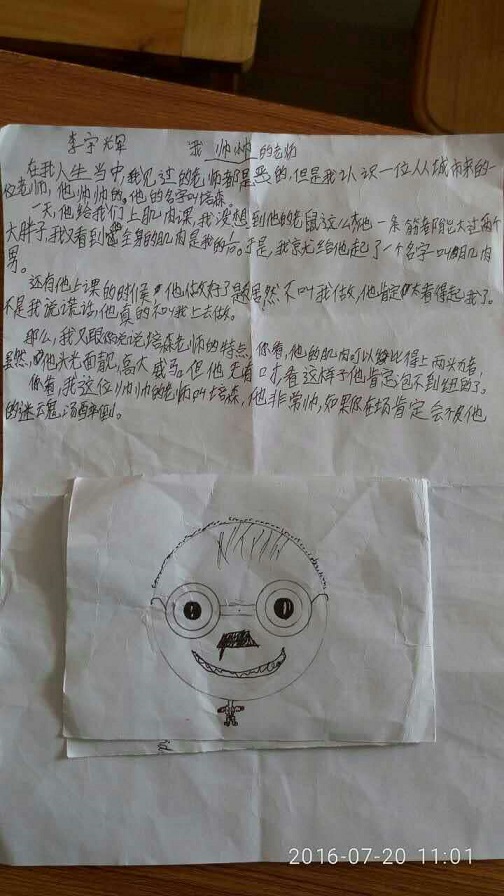 李宇光军 我帅帅的老师
在我人生当中,我见过的老师都是恶的,但是我认识一位从城市来的一
位老师,他帅帅的。他的名字叫培森。
一天,他给我们上肌肉课,我没想到他的老鼠这么 他一条筋都能大过两个
大胖子,我又看到 全身的肌肉是我的 于是,我就给他起了一个名字叫 肌肉
男。
还有他上课的时候,他做好了题居然不叫我做,他肯定太看得起我了。
不是我说谎话,他真的不叫我上去做。
那么,我又跟你说说培森老师的特点,你看,他的肌肉可以 比得上两头力者,
虽然,他头光面靓,高大威当,但他无有口才,看这样子他肯定泡不到妞的了。
你看,我这位帅帅的老师叫培森,他非常帅,如果你在场肯定会被他
的迷魂汤醉倒。
2016-07-20 11:01